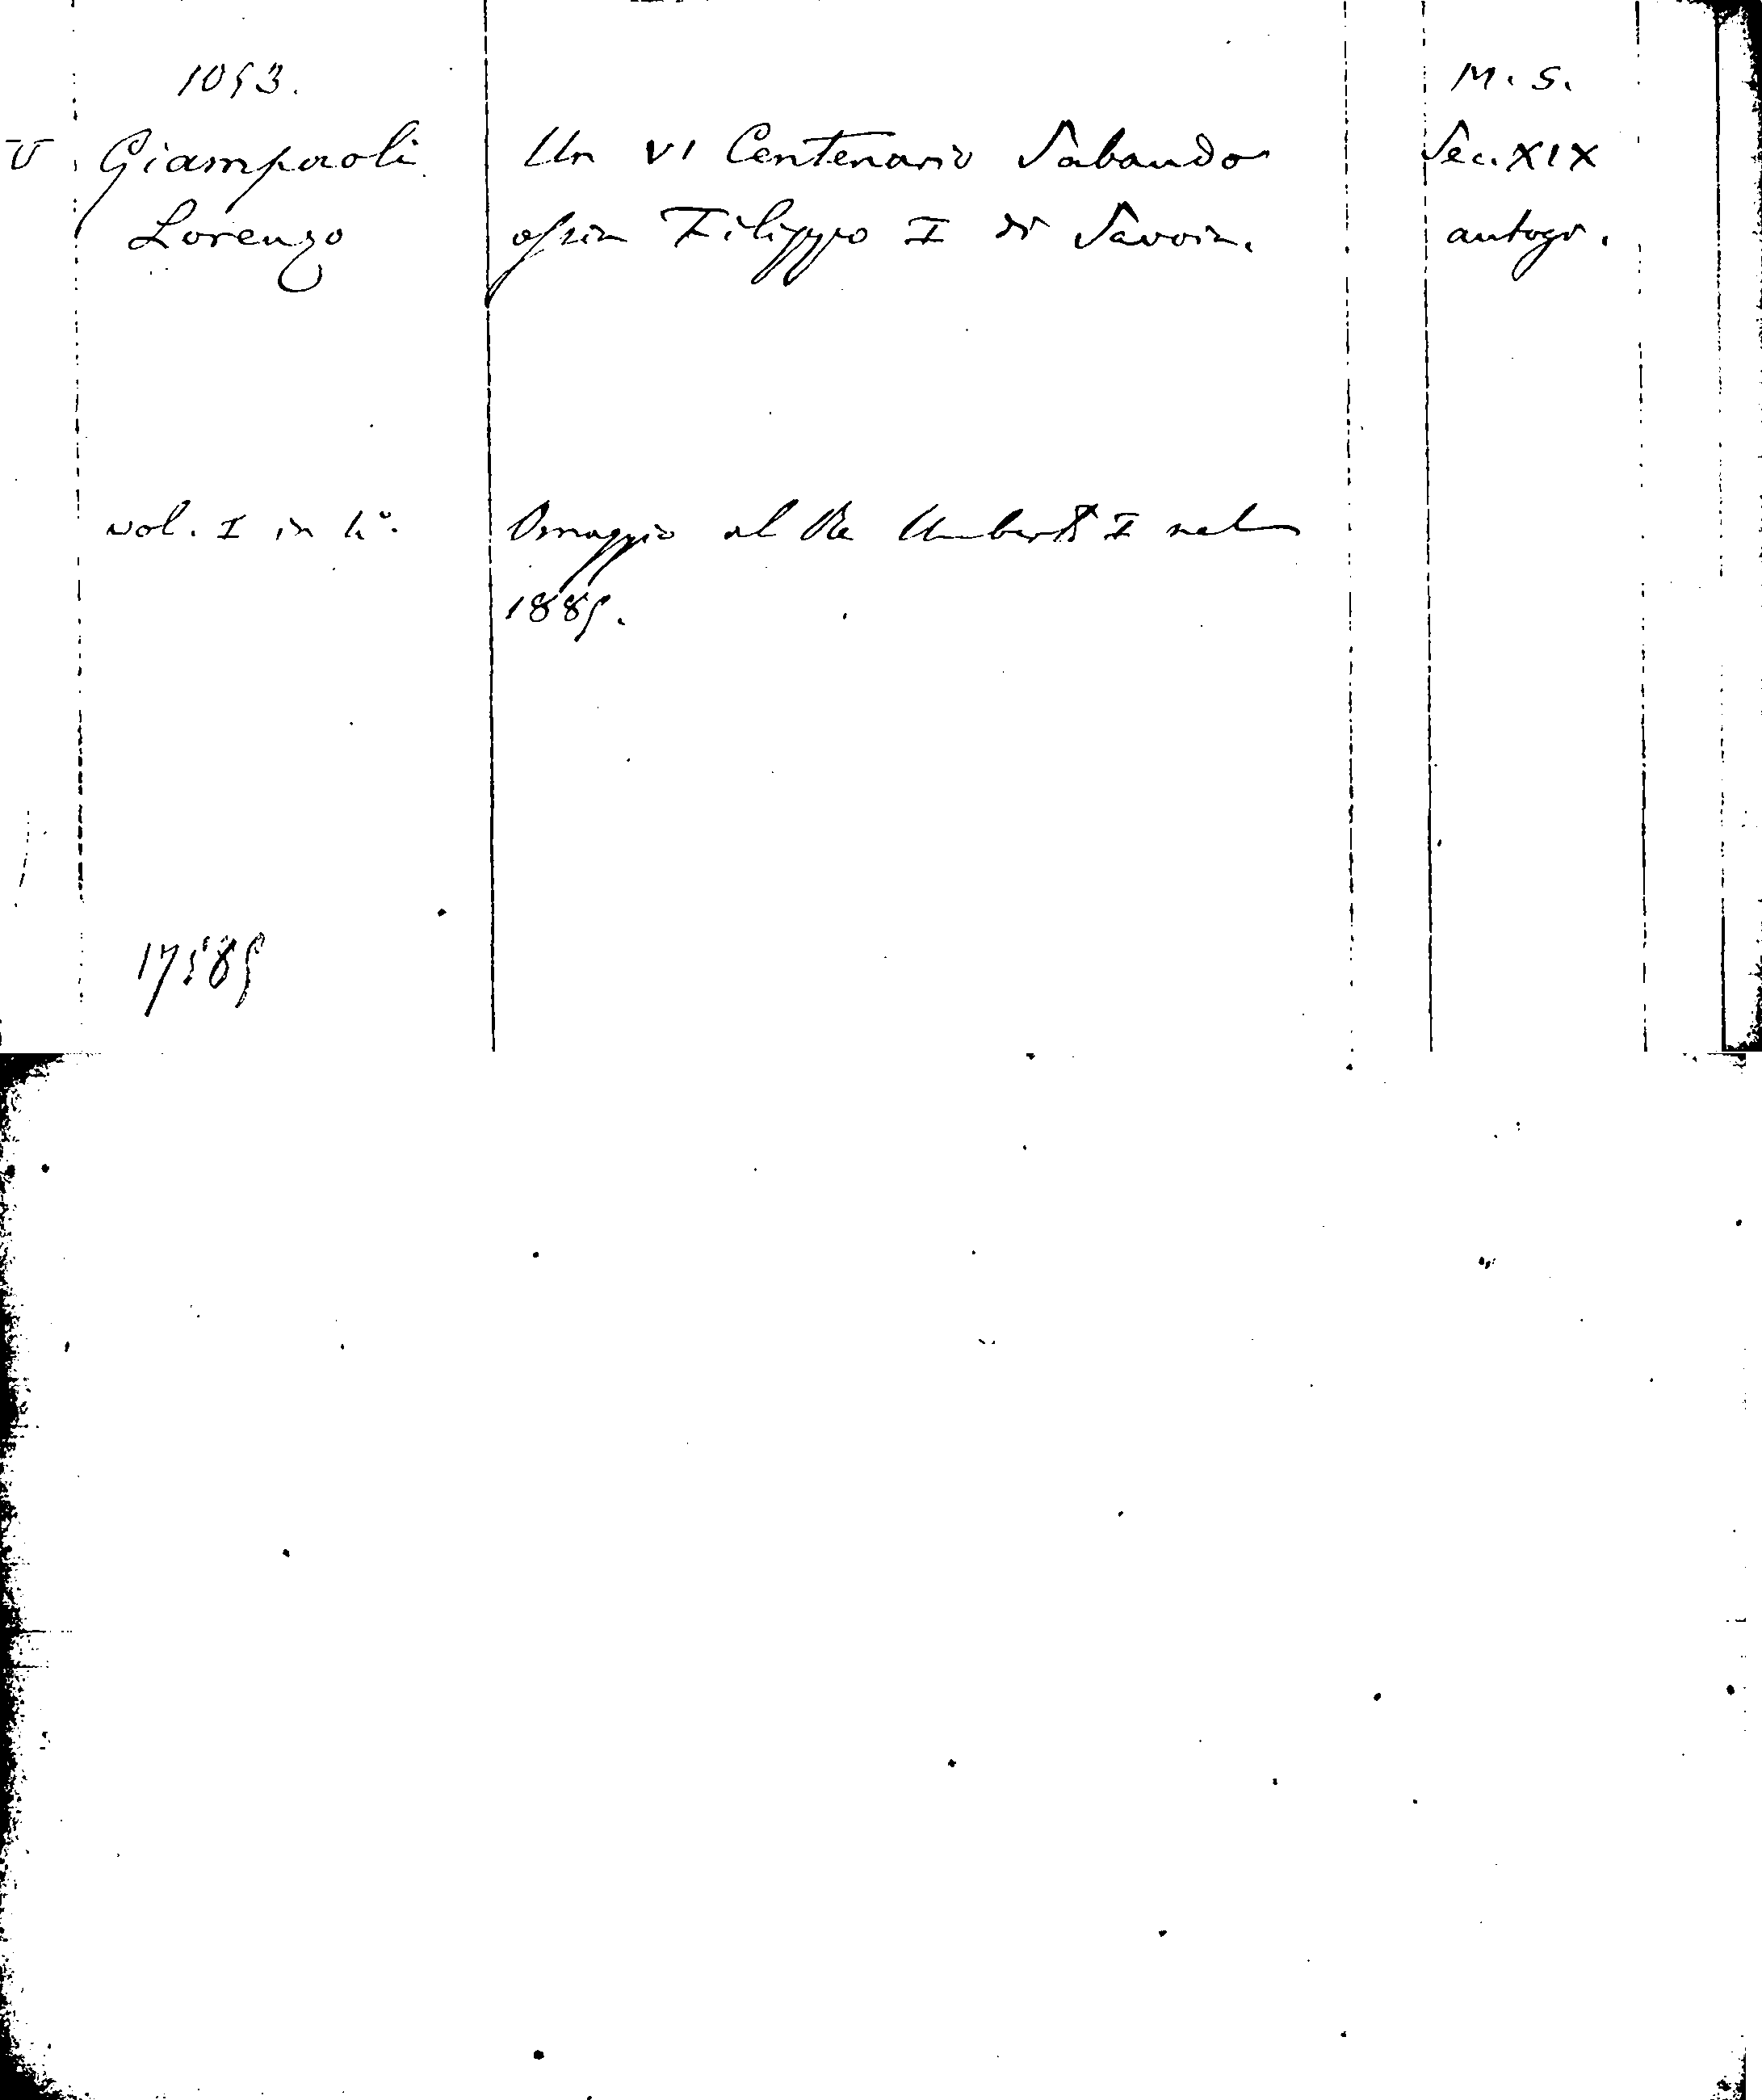 1053.
M. S.
V Giampaoli Un VI Centenario Sabaudo Sec. XIX
Lorenzo ossia Filippo I di Savoia. autogr.
vol. I in 4°. Omaggio al Re Umberto I nel
1885.
17585